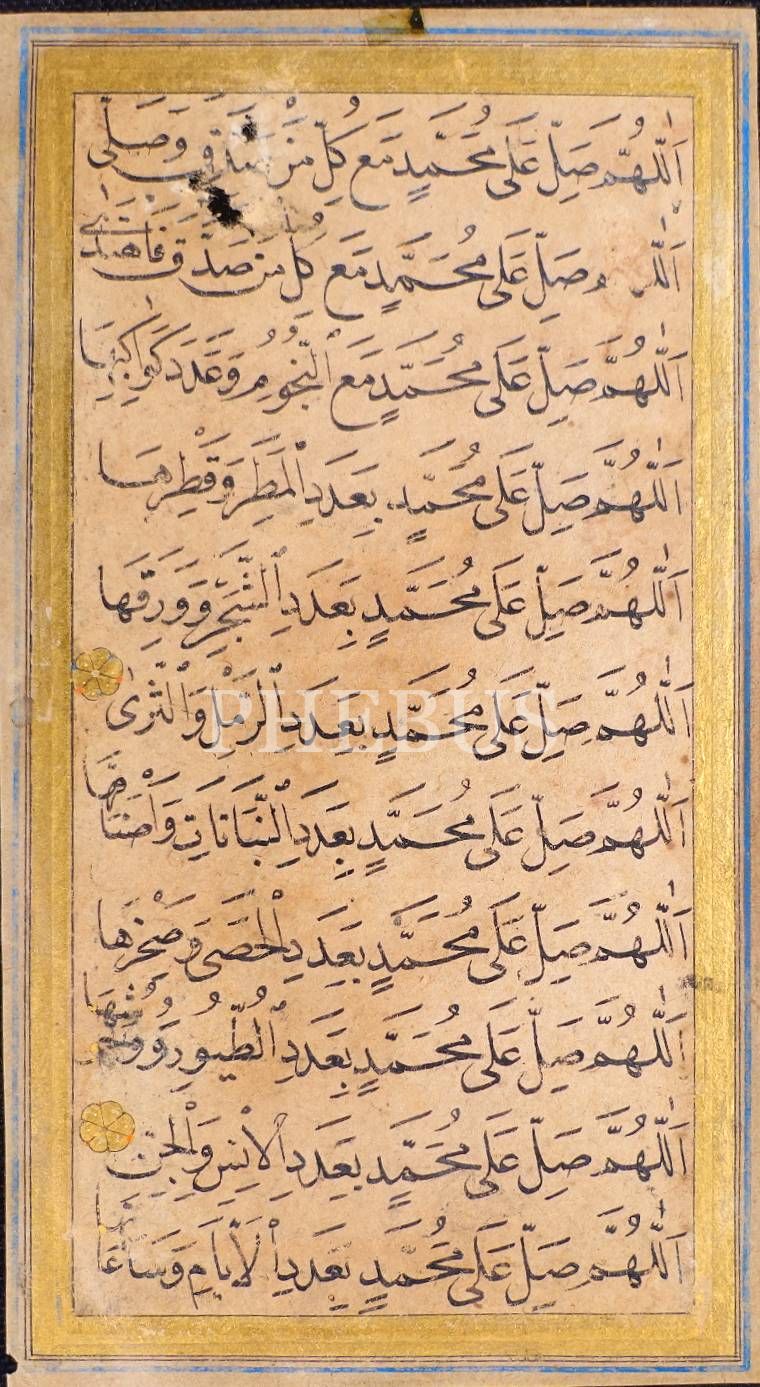 اَللّٰهُمَّ صَلِّ عَلَى مُحَمَّدٍ مَعَ كُلِّ مَنْ صَدَّقَ وَصَلّٰى
اَللّٰهُمَّ صَلِّ عَلَى مُحَمَّدٍ مَعَ كُلِّ مَنْ صَدَّقَ فَاهْتَدٰى
اَللّٰهُمَّ صَلِّ عَلَى مُحَمَّدٍ مَعَ النُّجُومِ وَعَدَدَ كَوَاكِبِهَا
اَللّٰهُمَّ صَلِّ عَلَى مُحَمَّدٍ بِعَدَدِ الْمَطَرِ وَقَطْرِهَا
اَللّٰهُمَّ صَلِّ عَلَى مُحَمَّدٍ بِعَدَدِ الشَّجَرِ وَوَرَقِهَا
اَللّٰهُمَّ صَلِّ عَلَى مُحَمَّدٍ بِعَدَدِ الرَّمْلِ وَالثَّرٰى
PHEBUS
اَللّٰهُمَّ صَلِّ عَلَى مُحَمَّدٍ بِعَدَدِ النَّبَاتَاتِ وَاَصْنَافِهَا
اَللّٰهُمَّ صَلِّ عَلَى مُحَمَّدٍ بِعَدَدِ الْحَصَى وَصَخْرِهَا
اَللّٰهُمَّ صَلِّ عَلَى مُحَمَّدٍ بِعَدَدِ الطُّيُورِ وَوُحُوشِهَا
اَللّٰهُمَّ صَلِّ عَلَى مُحَمَّدٍ بِعَدَدِ الْاِنْسِ وَالْجِنِّ
اَللّٰهُمَّ صَلِّ عَلَى مُحَمَّدٍ بِعَدَدِ الْاَيَّامِ وَسَاعَاتِهَا